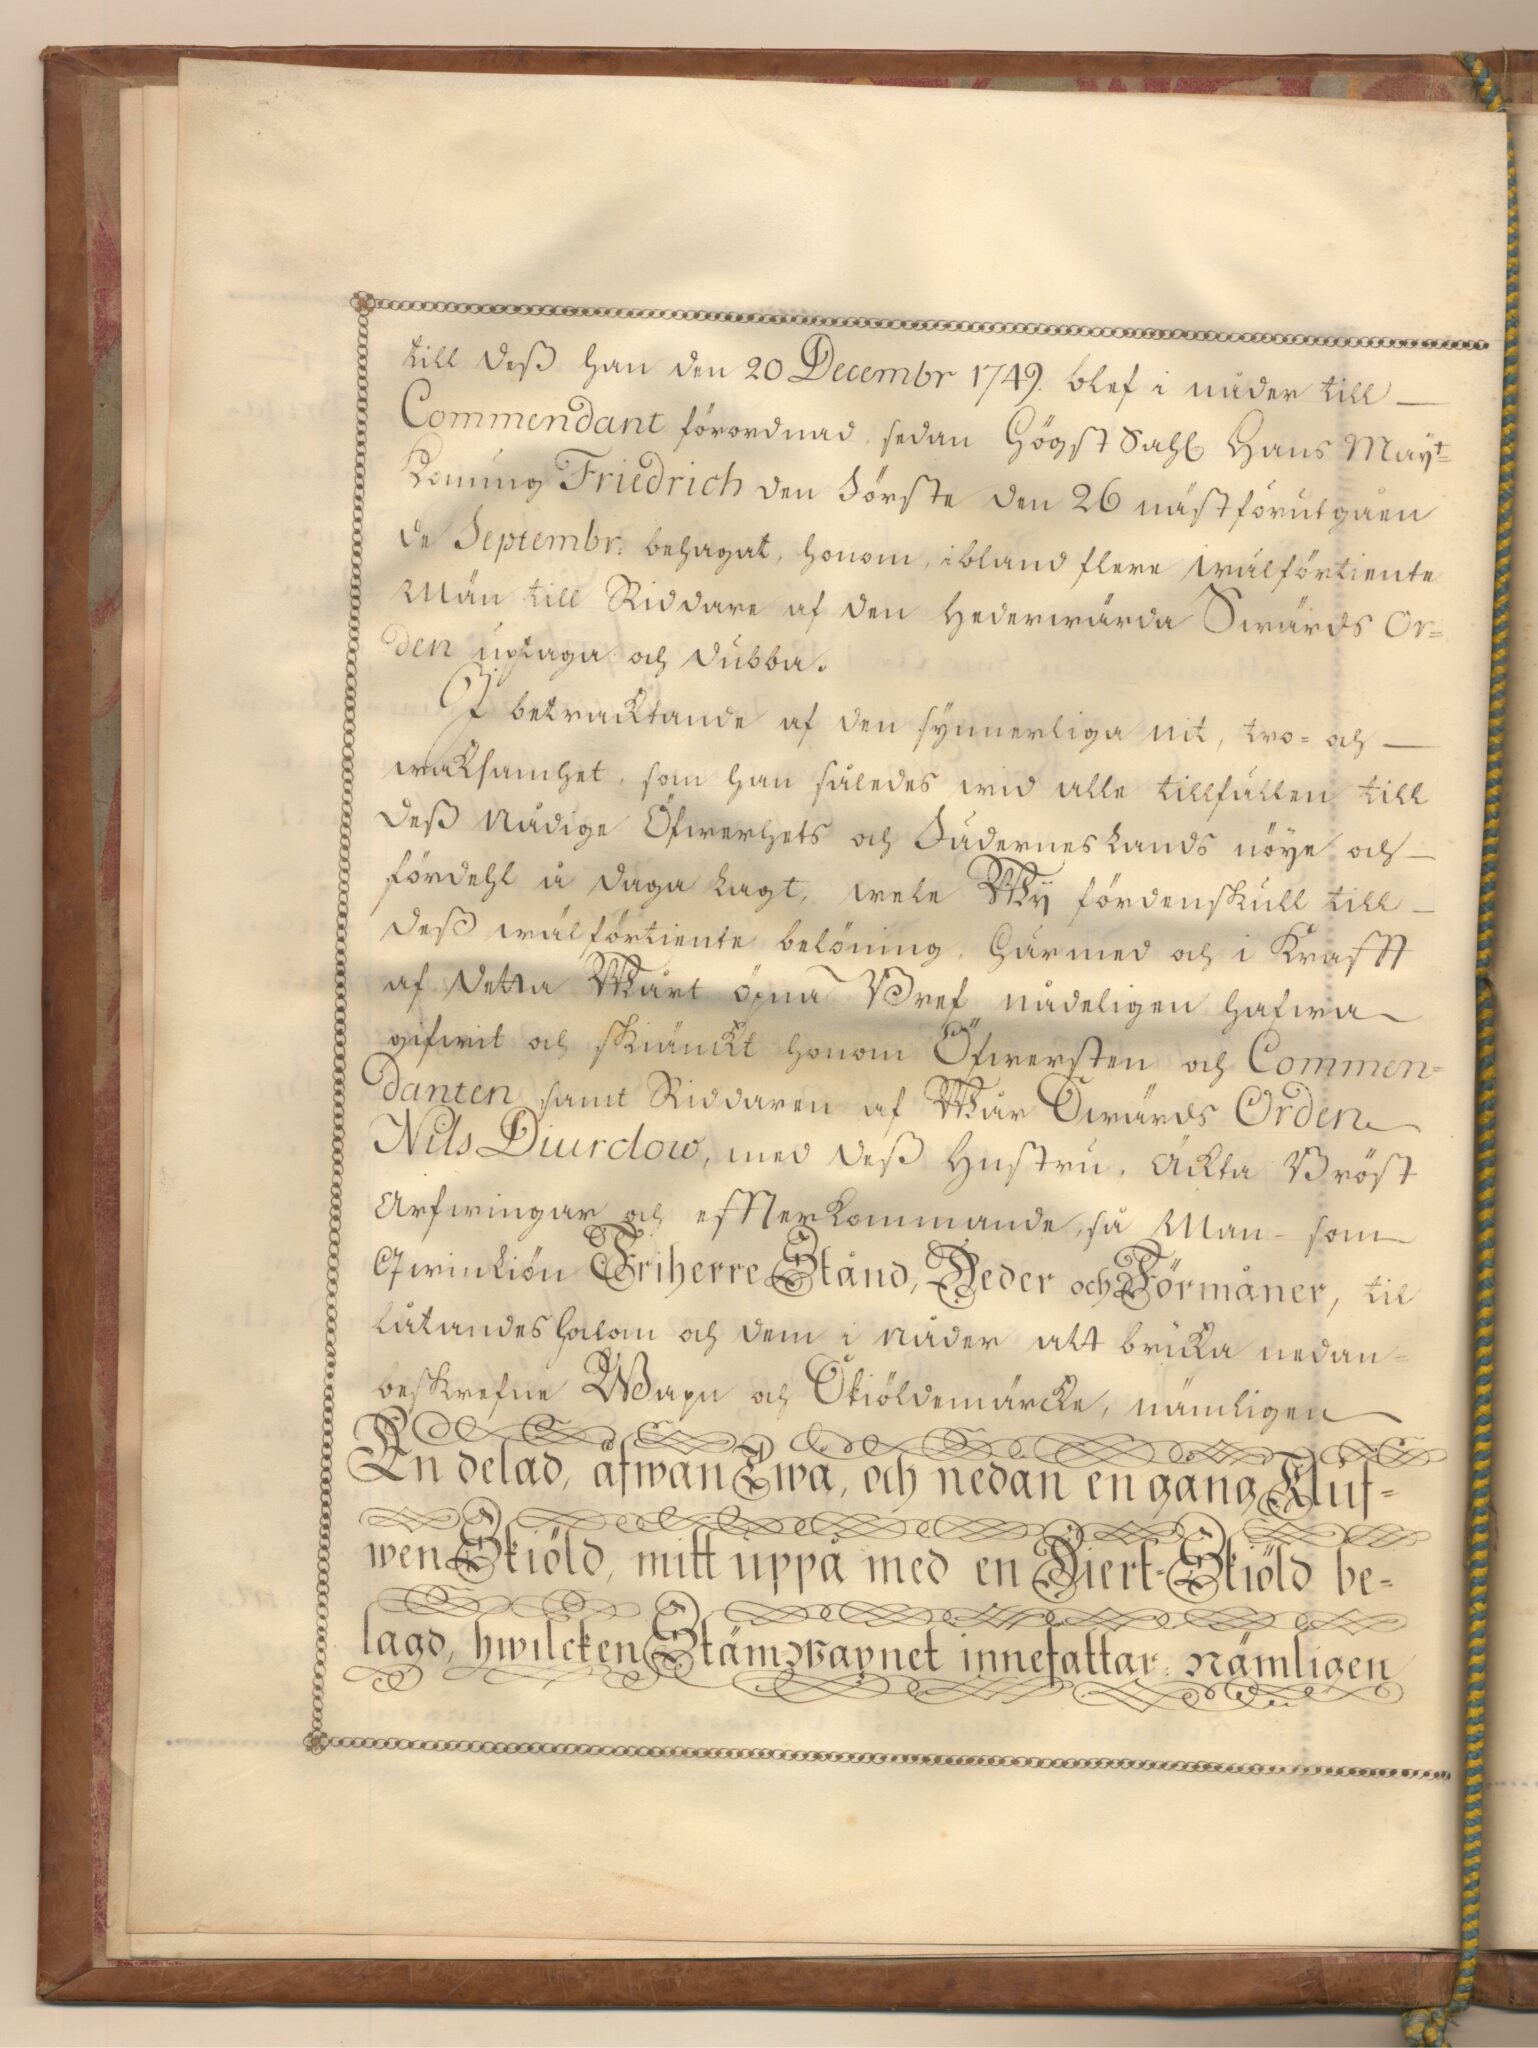 till deß han den 20 Decembr 1749. blef i nåder till
Commendant förordnad, sedan Högst Sahl. Hans Mayt=
Konung Friedrich den Förste den 26 nästförutgåen
de Septembr. behagat, honom, ibland flere wälförtiente
Män till Riddare af den Hederwärda Swärds Or=
den uptaga och dubba.
I betracktande af den synnerliga nit, tro= och
waksamhet, som han således wid alle tillfällen till
deß Nådige Öfwerhets och Fädernes Lands nöye och
fördehl å daga lagt, wele Wij fördenskull till
deß wälförtiente belöning, härmed och i Krafft
af detta Wårt öpna Bref nådeligen hafwa
gifwit och skiänckt honom Öfwersten och Commen=
danten samt Riddaren af Wår Swärds Orden
Nils Diurclow, med deß Hustru, Äckta Bröst
Arfwingar och effterkommande, så Man- som
Qwinkiön Friherre Stånd, Heder och Förmåner, til
låtandes honom och dem i nåder att bruka nedan=
beskrefne Wapn och Skiöldemärcke, nämligen
En delad, åfwan Twa, och nedan en gang Kluf=
wen Skiöld, mitt uppå med en Hiert=Skiöld be=
lagd, hwilcken Stämwapnet innefattar: Nämligen